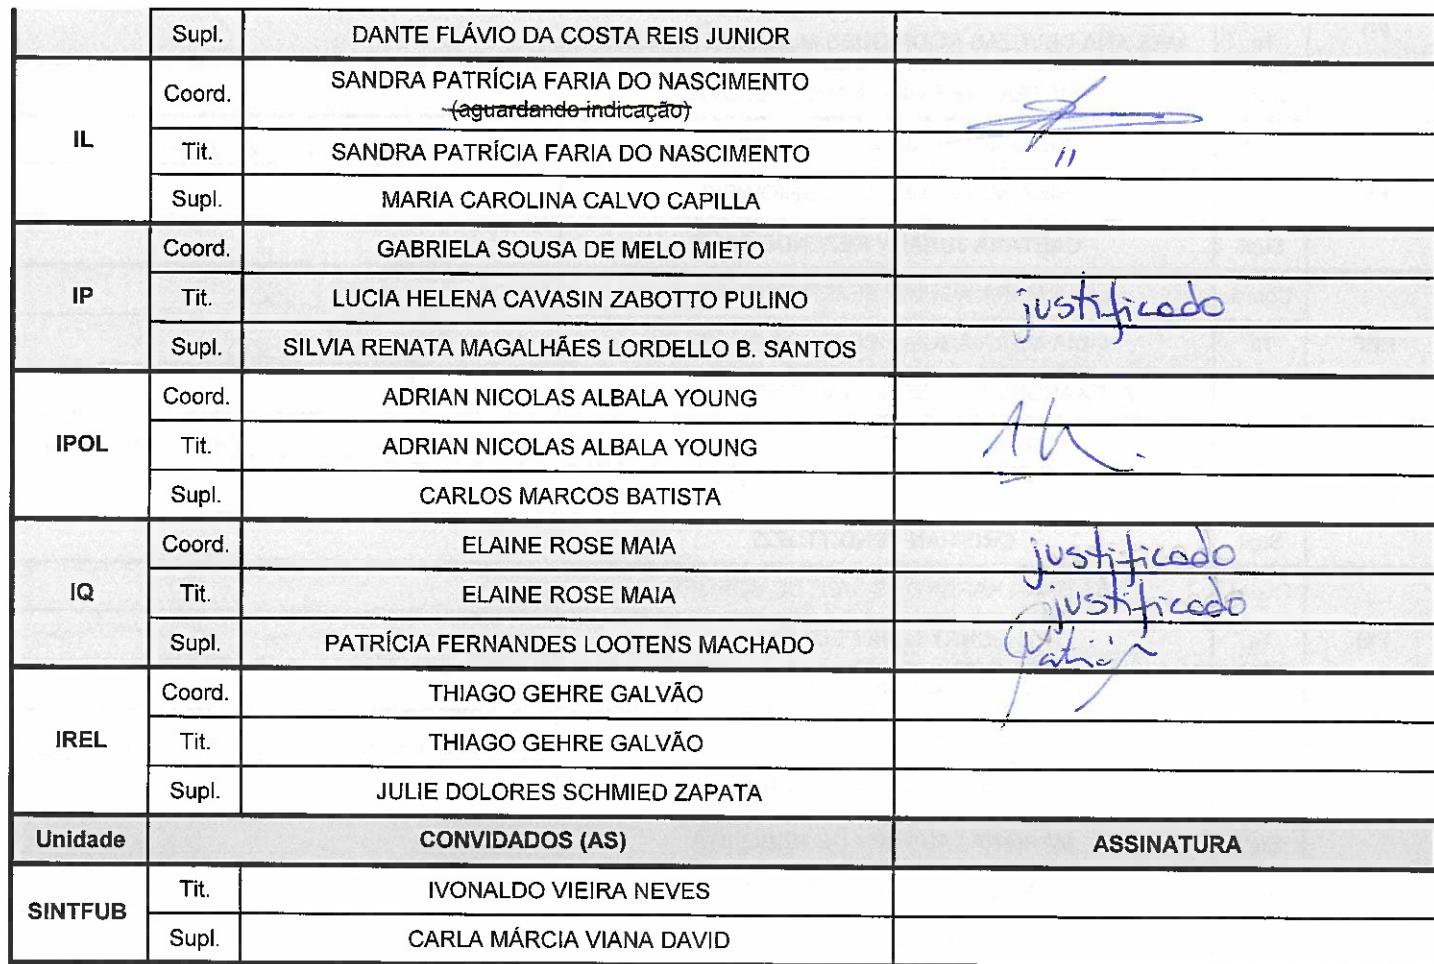 Supl. DANTE FLÁVIO DA COSTA REIS JUNIOR
IL
Coord. SANDRA PATRÍCIA FARIA DO NASCIMENTO
(aguardando indicação)
Tit. SANDRA PATRÍCIA FARIA DO NASCIMENTO "
Supl. MARIA CAROLINA CALVO CAPILLA
IP
Coord. GABRIELA SOUSA DE MELO MIETO
Tit. LUCIA HELENA CAVASIN ZABOTTO PULINO justificado
Supl. SILVIA RENATA MAGALHÃES LORDELLO B. SANTOS
IPOL
Coord. ADRIAN NICOLAS ALBALA YOUNG
Tit. ADRIAN NICOLAS ALBALA YOUNG
Supl. CARLOS MARCOS BATISTA
IQ
Coord. ELAINE ROSE MAIA justificado
Tit. ELAINE ROSE MAIA justificado
Supl. PATRÍCIA FERNANDES LOOTENS MACHADO
IREL
Coord. THIAGO GEHRE GALVÃO
Tit. THIAGO GEHRE GALVÃO
Supl. JULIE DOLORES SCHMIED ZAPATA
Unidade CONVIDADOS (AS) ASSINATURA
SINTFUB
Tit. IVONALDO VIEIRA NEVES
Supl. CARLA MÁRCIA VIANA DAVID